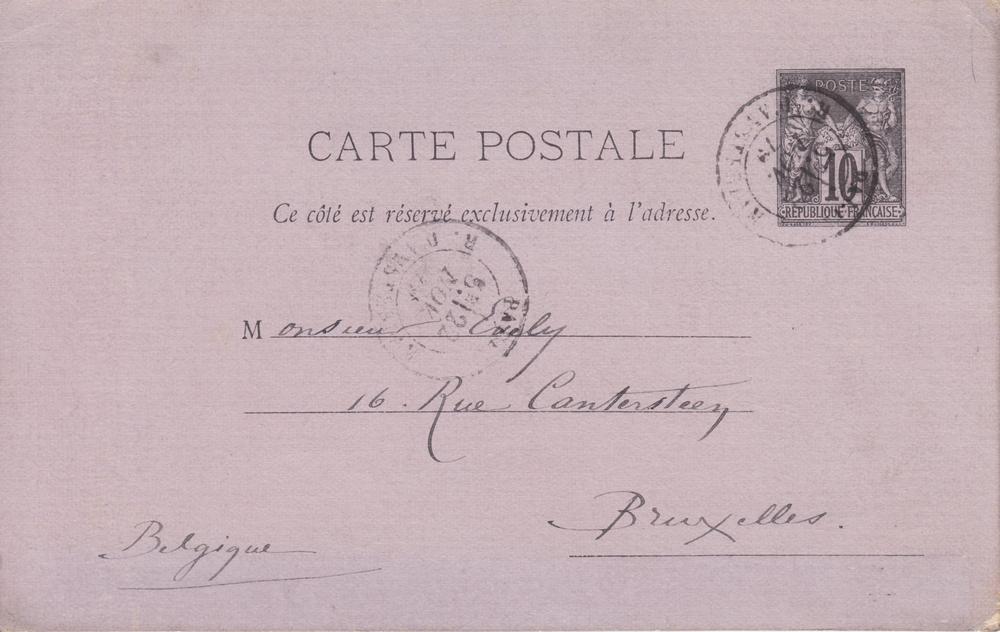 POSTE
10
RÉPUBLIQUE FRANÇAISE
CARTE POSTALE
Ce côté est réservé exclusivement à l'adresse.
Monsieur
16. Rue Cantersteen
Bruxelles.
Belgique